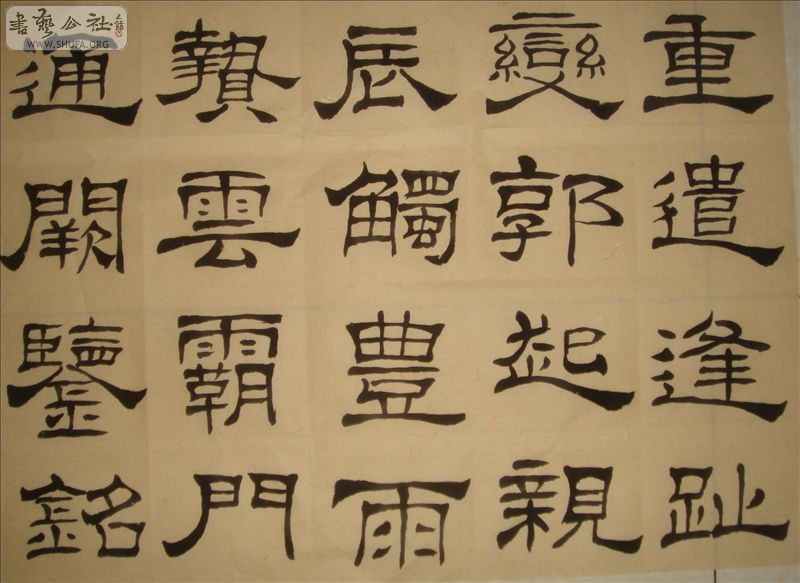 重遣逢趾
變郭起親
辰觸豊雨
贄雲霸門
通闕鑒銘
書藝公社
WWW.SHUFA.ORG